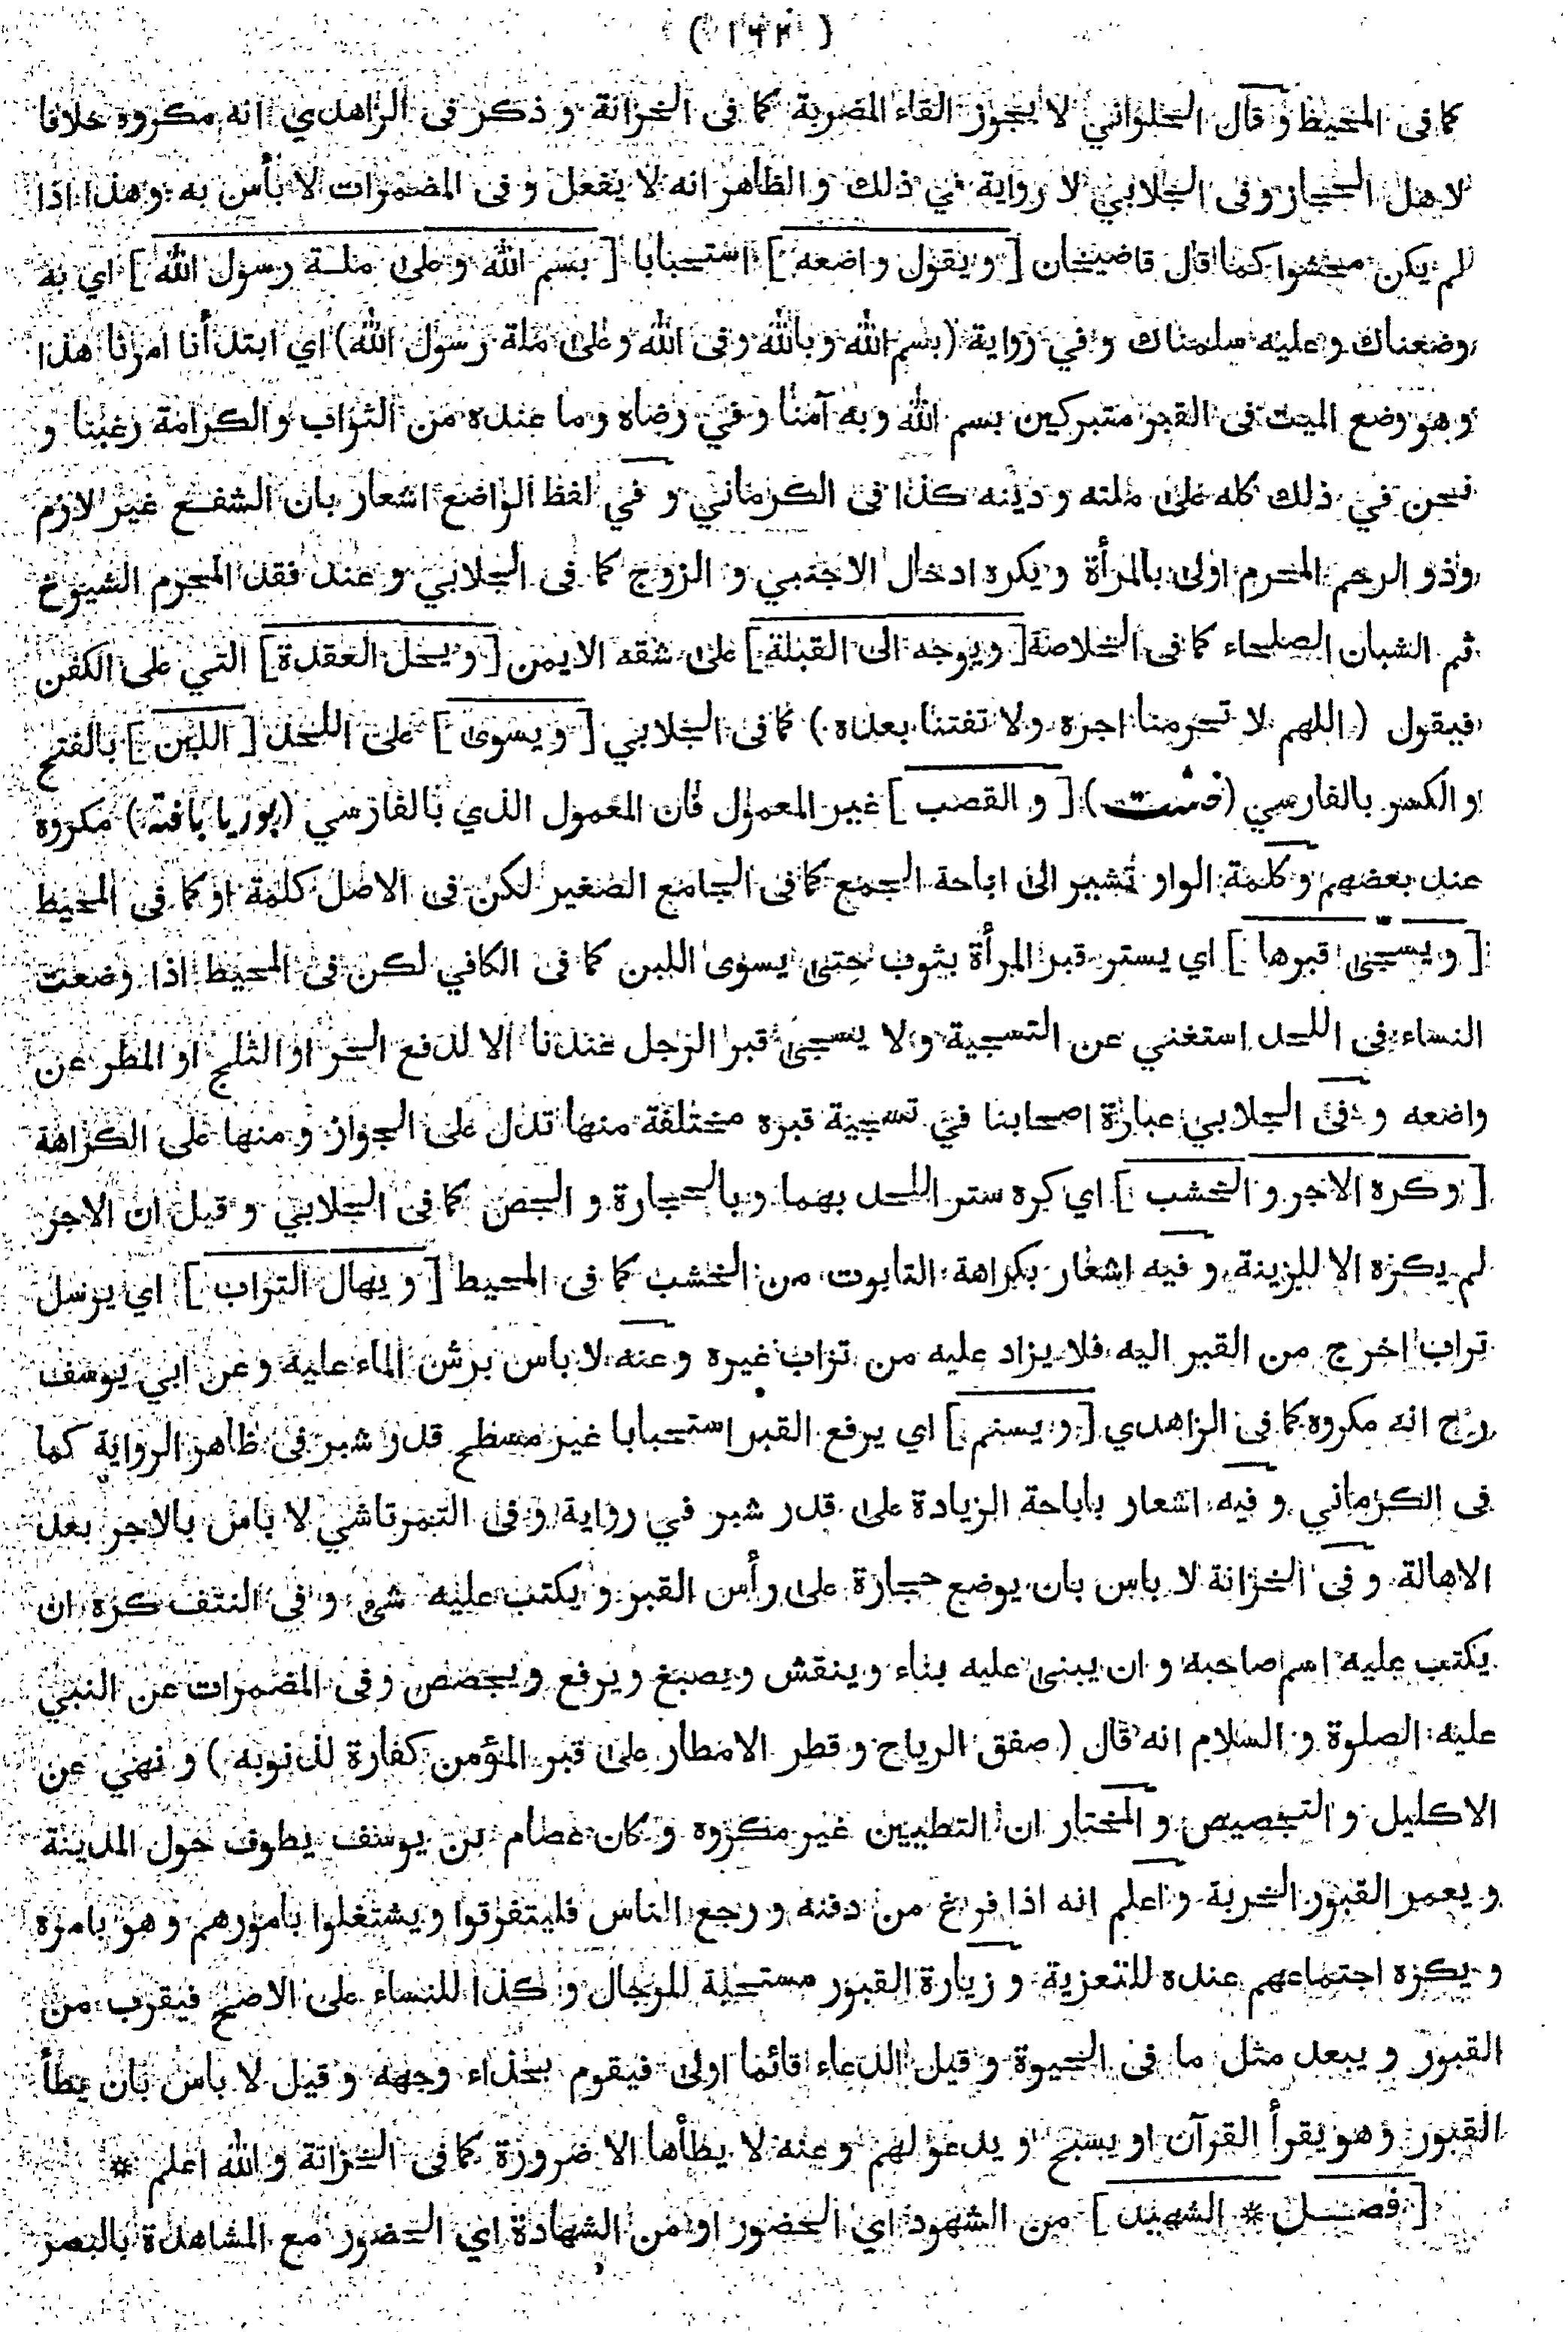 ( ١٦٣ )
كما فى المحيط و قال الحلوائي لا يجوز القاء المضربة كما فى الخزانة و ذكر فى الزاهدي انه مكروه خلافا
لاهل الحجاز و فى الجلابي لا رواية في ذلك و الظاهر انه لا يفعل و فى المضمرات لا بأس به و هذا اذا
لم يكن محشوا كما قال قاضيخان [ و يقول واضعه ] استحبابا [ بسم الله و على ملة رسول الله ] اي به
وضعناك و عليه سلمناك و في رواية (بسم الله و بالله و فى الله و على ملة رسول الله) اي ابتدأنا امرنا هذا
و هو وضع الميت فى القبر متبركين بسم الله و به آمنا و في رضاه و ما عنده من الثواب و الكرامة رغبنا و
نحن في ذلك كله على ملته و دينه كذا فى الكرماني و في لفظ الواضع اشعار بان الشفع غير لازم
وذو الرحم المحرم اولى بالمرأة و يكره ادخال الاجنبي و الزوج كما فى الجلابي و عند فقد المحرم الشيوخ
ثم الشبان الصلحاء كما فى الخلاصة [ و يوجه الى القبلة ] على شقه الايمن [ و يحل العقدة ] التي على الكفن
فيقول ( اللهم لا تحرمنا اجره و لا تفتنا بعده ) كما فى الجلابي [ و يسوى ] على اللحد [ اللبن ] بالفتح
او الكسر بالفارسي (خشت) [ و القصب ] غير المعمول فان المعمول الذي بالفارسي (بوريا بافته) مكروه
عند بعضهم و كلمة الواو تشير الى اباحة الجمع كما فى الجامع الصغير لكن فى الاصل كلمة او كما فى المحيط
[ و يسجى قبرها ] اي يستر قبر المرأة بثوب حتى يسوى اللبن كما فى الكافي لكن فى المحيط اذا وضعت
النساء فى اللحد استغني عن التسجية و لا يسجى قبر الرجل عندنا الا لدفع الحر او الثلج او المطر عن
واضعه و فى الجلابي عبارة اصحابنا في تسجية قبره مختلفة منها تدل على الجواز و منها على الكراهة
[ و كره الاجر و الخشب ] اي كره ستر اللحد بهما و بالحجارة و الجص كما فى الجلابي و قيل ان الاجر
لم يكره الا للزينة و فيه اشعار بكراهة التابوت من الخشب كما فى المحيط [ و يهال التراب ] اي يرسل
تراب اخرج من القبر اليه فلا يزاد عليه من تراب غيره و عنه لا باس برش الماء عليه و عن ابي يوسف
رح انه مكروه كما فى الزاهدي [ و يسنم ] اي يرفع القبر استحبابا غير مسطح قدر شبر فى ظاهر الرواية كما
فى الكرماني و فيه اشعار باباحة الزيادة على قدر شبر في رواية و فى التمرتاشي لا باس بالاجر بعد
الاهالة و فى الخزانة لا باس بان يوضع حجارة على رأس القبر و يكتب عليه شئ و فى النتف كره ان
يكتب عليه اسم صاحبه و ان يبنى عليه بناء و ينقش و يصبغ و يرفع و يجصص و فى المضمرات عن النبي
عليه الصلوة و السلام انه قال ( صفق الرياح و قطر الامطار على قبر المؤمن كفارة لذنوبه ) و نهي عن
الاكليل و التجصيص و المختار ان التطيين غير مكروه و كان عصام بن يوسف يطوف حول المدينة
و يعمر القبور الخربة و اعلم انه اذا فرغ من دفنه و رجع الناس فليتفرقوا و يشتغلوا بامورهم و هو بامره
و يكره اجتماعهم عنده للتعزية و زيارة القبور مستحبة للرجال و كذا للنساء على الاصح فيقرب من
القبور و يبعد مثل ما فى الحيوة و قيل الدعاء قائما اولى فيقوم بحذاء وجهه و قيل لا باس بان يطأ
القبور و هو يقرأ القرآن او يسبح او يدعو لهم و عنه لا يطأها الا ضرورة كما فى الخزانة و الله اعلم *
[ فصل * الشهيد ] من الشهود اي الحضور او من الشهادة اي الحضور مع المشاهدة بالبصر